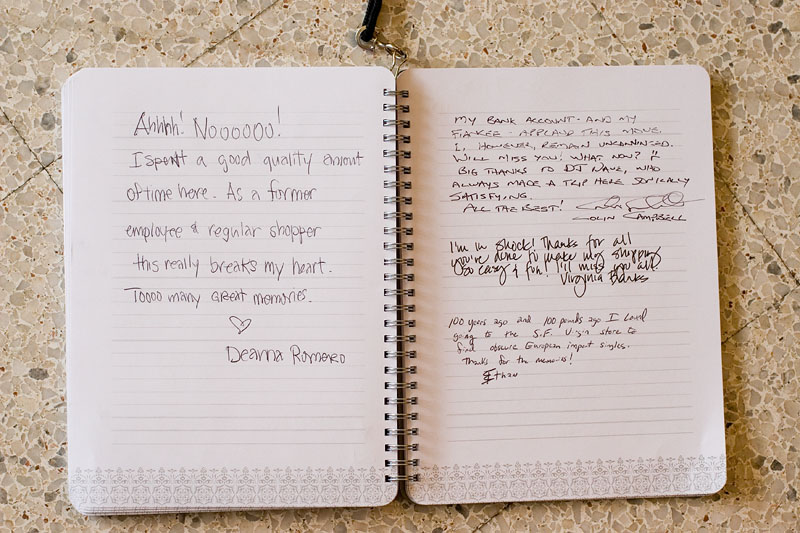 Ahhhh! Noooooo!
I spent a good quality amount
of time here. As a former
employee & regular shopper
this really breaks my heart.
Toooo many great memories.
♡
Deanna Romero
MY BANK ACCOUNT - AND MY
FIANCEE - APPLAUD THIS MOVE.
I, HOWEVER, REMAIN UNCONVINCED.
WILL MISS YOU! WHAT NOW?
BIG THANKS TO DJ NAVE, WHO
ALWAYS MADE A TRIP HERE SONICALLY
SATISFYING.
ALL THE BEST!
COLIN CAMPBELL
I'm in shock! Thanks for all
you've done to make my shopping
so easy & fun! I'll miss you all.
Virginia Banks
100 years ago and 100 pounds ago I loved
going to the S.F. Virgin store to
find obscure European import singles.
Thanks for the memories!
Ethan